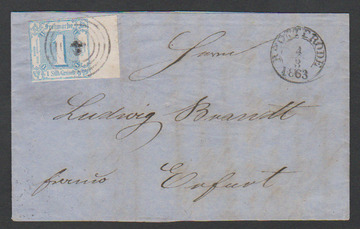 1
BROTTERODE
4
3
1863
Herrn
Ludwig Brandt
franco
Erfurt